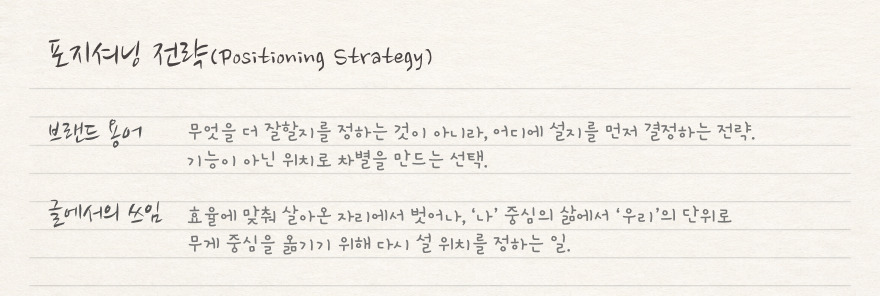 포지셔닝 전략(Positioning Strategy)
브랜드 용어 무엇을 더 잘할지를 정하는 것이 아니라, 어디에 설지를 먼저 결정하는 전략.
기능이 아닌 위치로 차별을 만드는 선택.
글에서의 쓰임 효율에 맞춰 살아온 자리에서 벗어나, ‘나’ 중심의 삶에서 ‘우리’의 단위로
무게 중심을 옮기기 위해 다시 설 위치를 정하는 일.